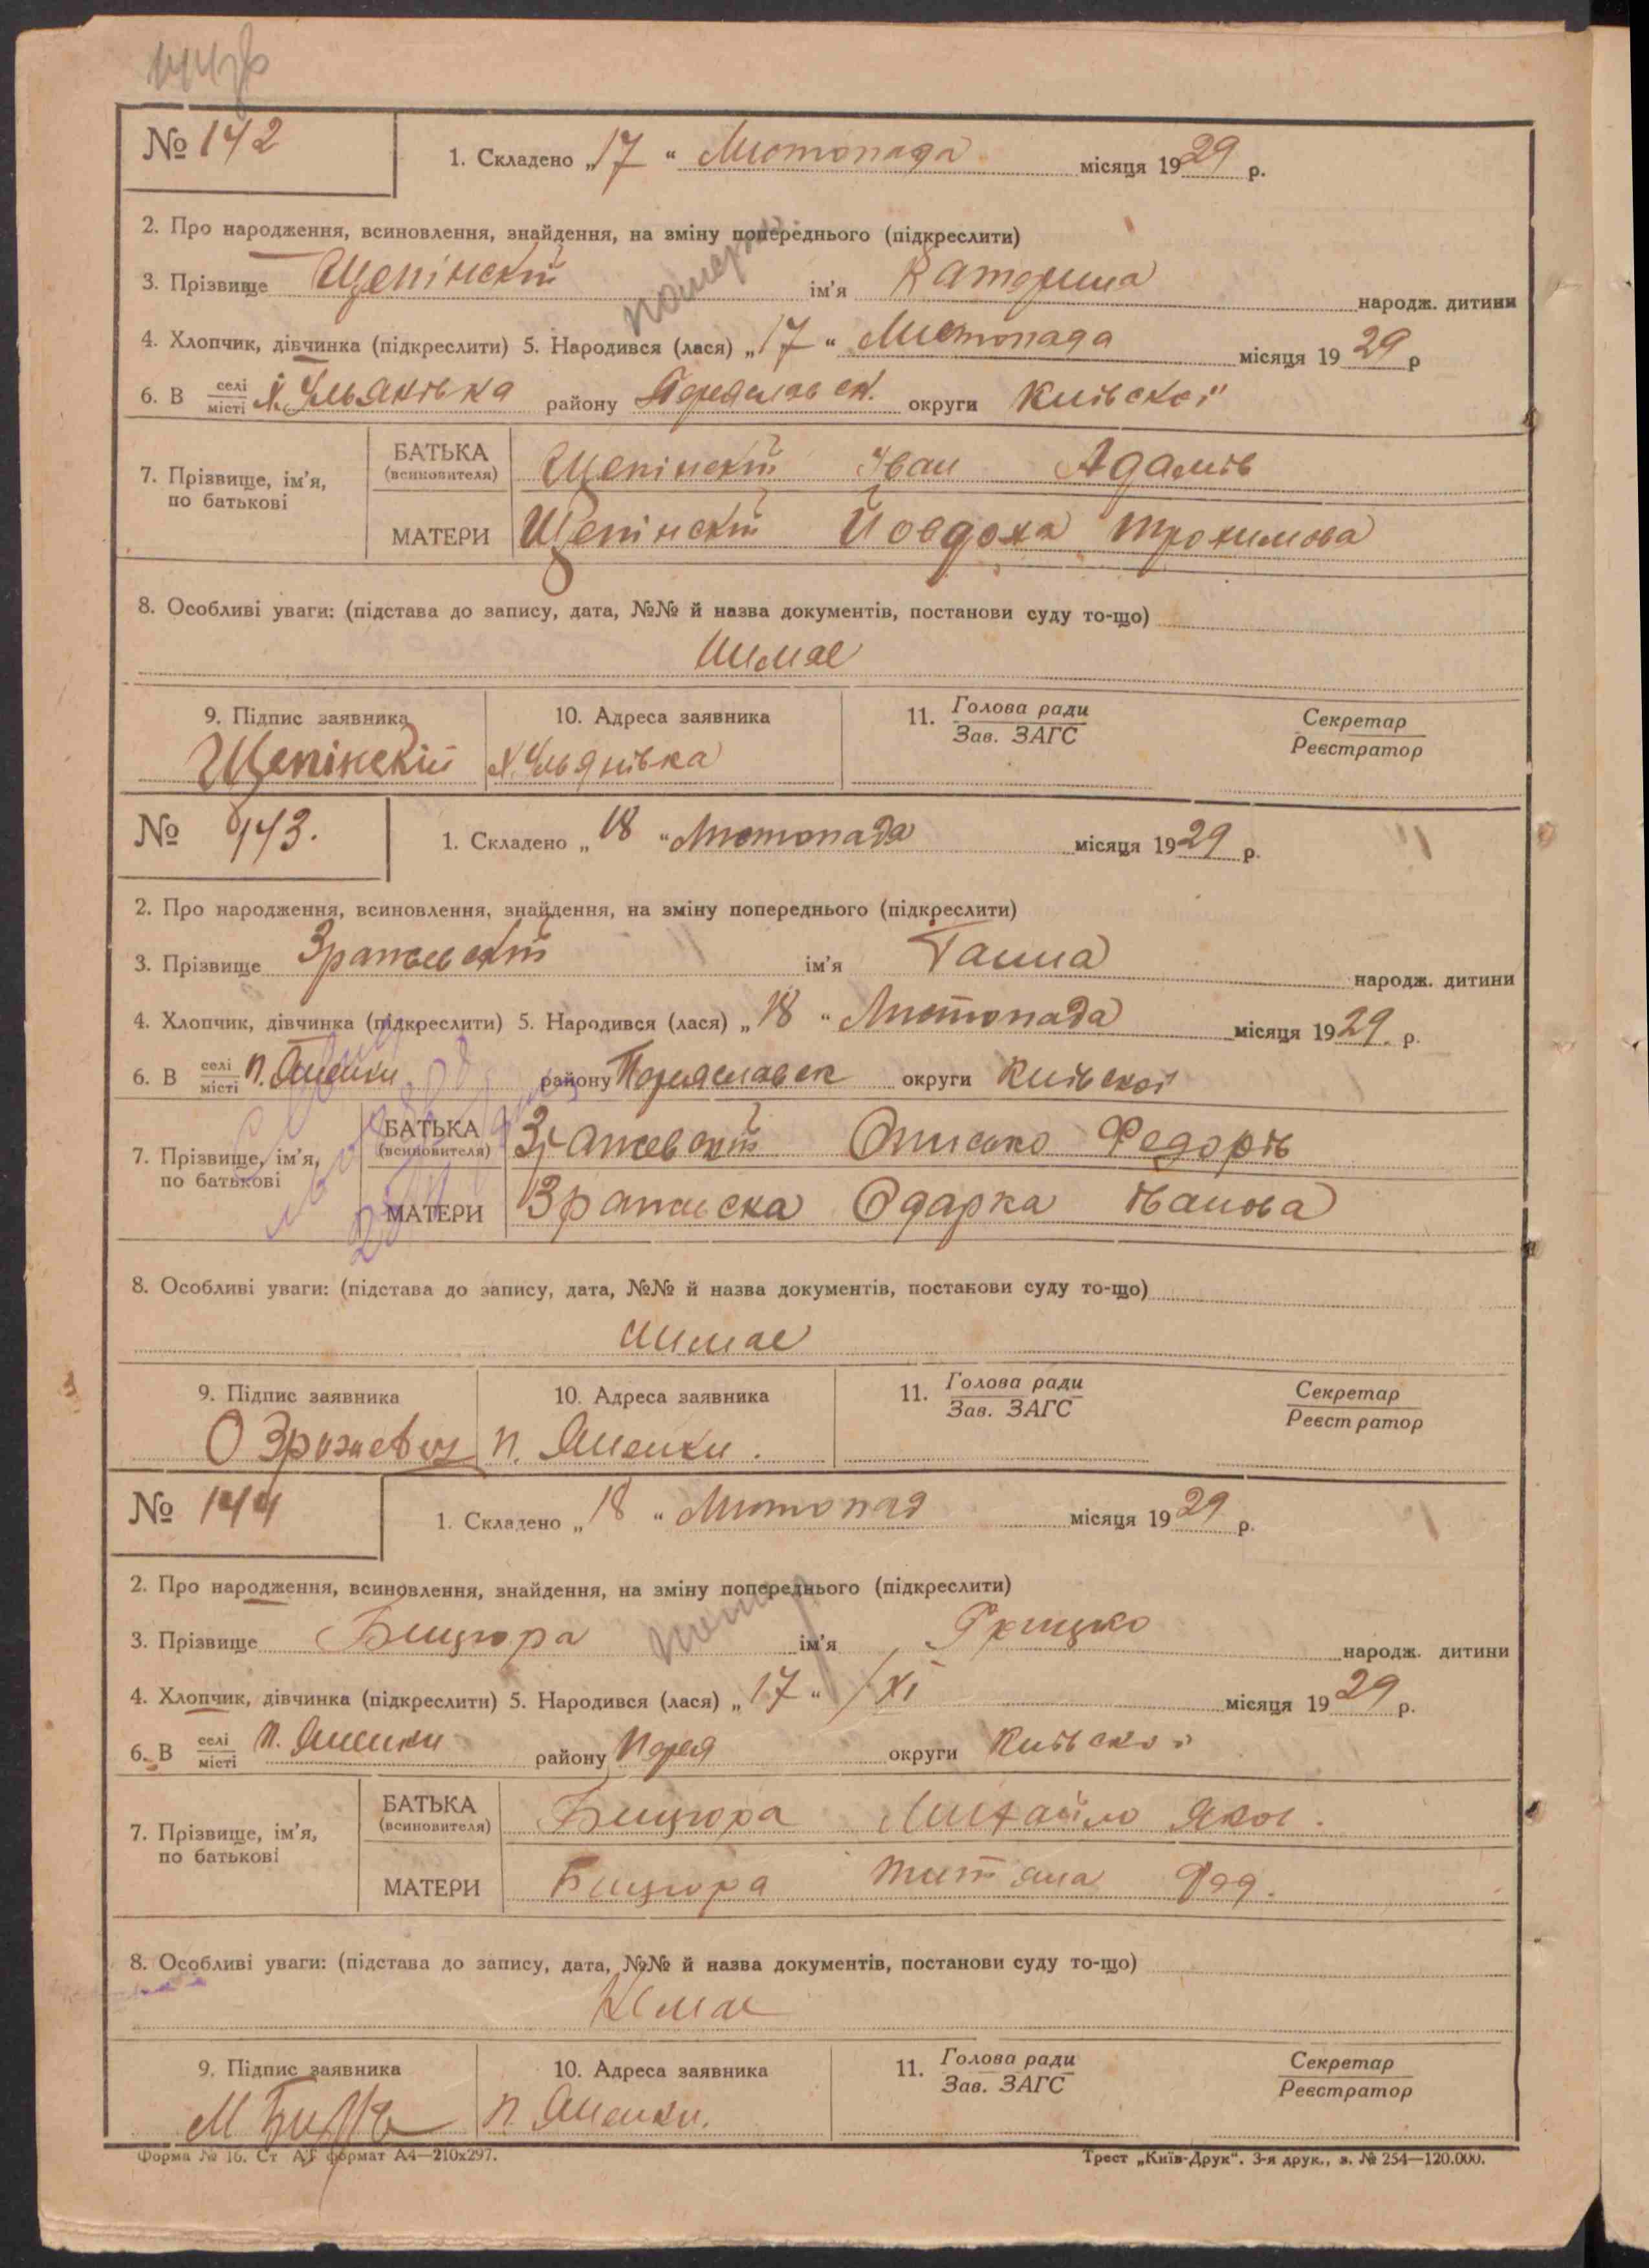 № 142
1. Складено „17“ Листопада місяця 1929 р.
2. Про народження, всиновлення, знайдення, на зміну попереднього (підкреслити)
померла
3. Прізвище Щепінскій ім'я Катерина народж. дитини
4. Хлопчик, дівчинка (підкреслити) 5. Народився (лася) „17“ Листопада місяця 1929 р
6. В селі/місті х. Ульянівка району Переяславск. округи Київскої
7. Прізвище, ім'я, по батькові
БАТЬКА (всиновителя) Щепінскій Іван Адамів
МАТЕРИ Щепінскій Йовдоха Трохимова
8. Особливі уваги: (підстава до запису, дата, №№ й назва документів, постанови суду то-що)
Нимає
9. Підпис заявника 10. Адреса заявника 11. Голова ради/Зав. ЗАГС Секретар/Реєстратор
Щепінскій х. Ульянівка
№ 143.
1. Складено „18“ Листопада місяця 1929 р.
2. Про народження, всиновлення, знайдення, на зміну попереднього (підкреслити)
3. Прізвище Зражевскій ім'я Ганна народж. дитини
4. Хлопчик, дівчинка (підкреслити) 5. Народився (лася) „18“ Листопада місяця 1929. р.
6. В селі/місті п. Яненки району Переяславск округи Київскої
7. Прізвище, ім'я, по батькові
БАТЬКА (всиновителя) Зражевскій Онисько Федорів
МАТЕРИ Одарка Іванова
8. Особливі уваги: (підстава до запису, дата, №№ й назва документів, постанови суду то-що)
нимає
9. Підпис заявника 10. Адреса заявника 11. Голова ради/Зав. ЗАГС Секретар/Реєстратор
О п. Яненки.
№ 144
1. Складено „18“ Листопад місяця 1929 р.
2. Про народження, всиновлення, знайдення, на зміну попереднього (підкреслити)
3. Прізвище Бицюра ім'я Грицько народж. дитини
4. Хлопчик, дівчинка (підкреслити) 5. Народився (лася) „17“ /XI місяця 1929 р.
6. В селі/місті п. Яненки району Перея округи Київскої
7. Прізвище, ім'я, по батькові
БАТЬКА (всиновителя) Бицюра Михайло Яков.
МАТЕРИ Бицюра Титяна
8. Особливі уваги: (підстава до запису, дата, №№ й назва документів, постанови суду то-що)
Німає
9. Підпис заявника 10. Адреса заявника 11. Голова ради/Зав. ЗАГС Секретар/Реєстратор
М п. Яненки.
Форма № 16. Ст А5 формат А4—210х297.
Трест „Київ-Друк“. 3-я друк., з. № 254—120.000.